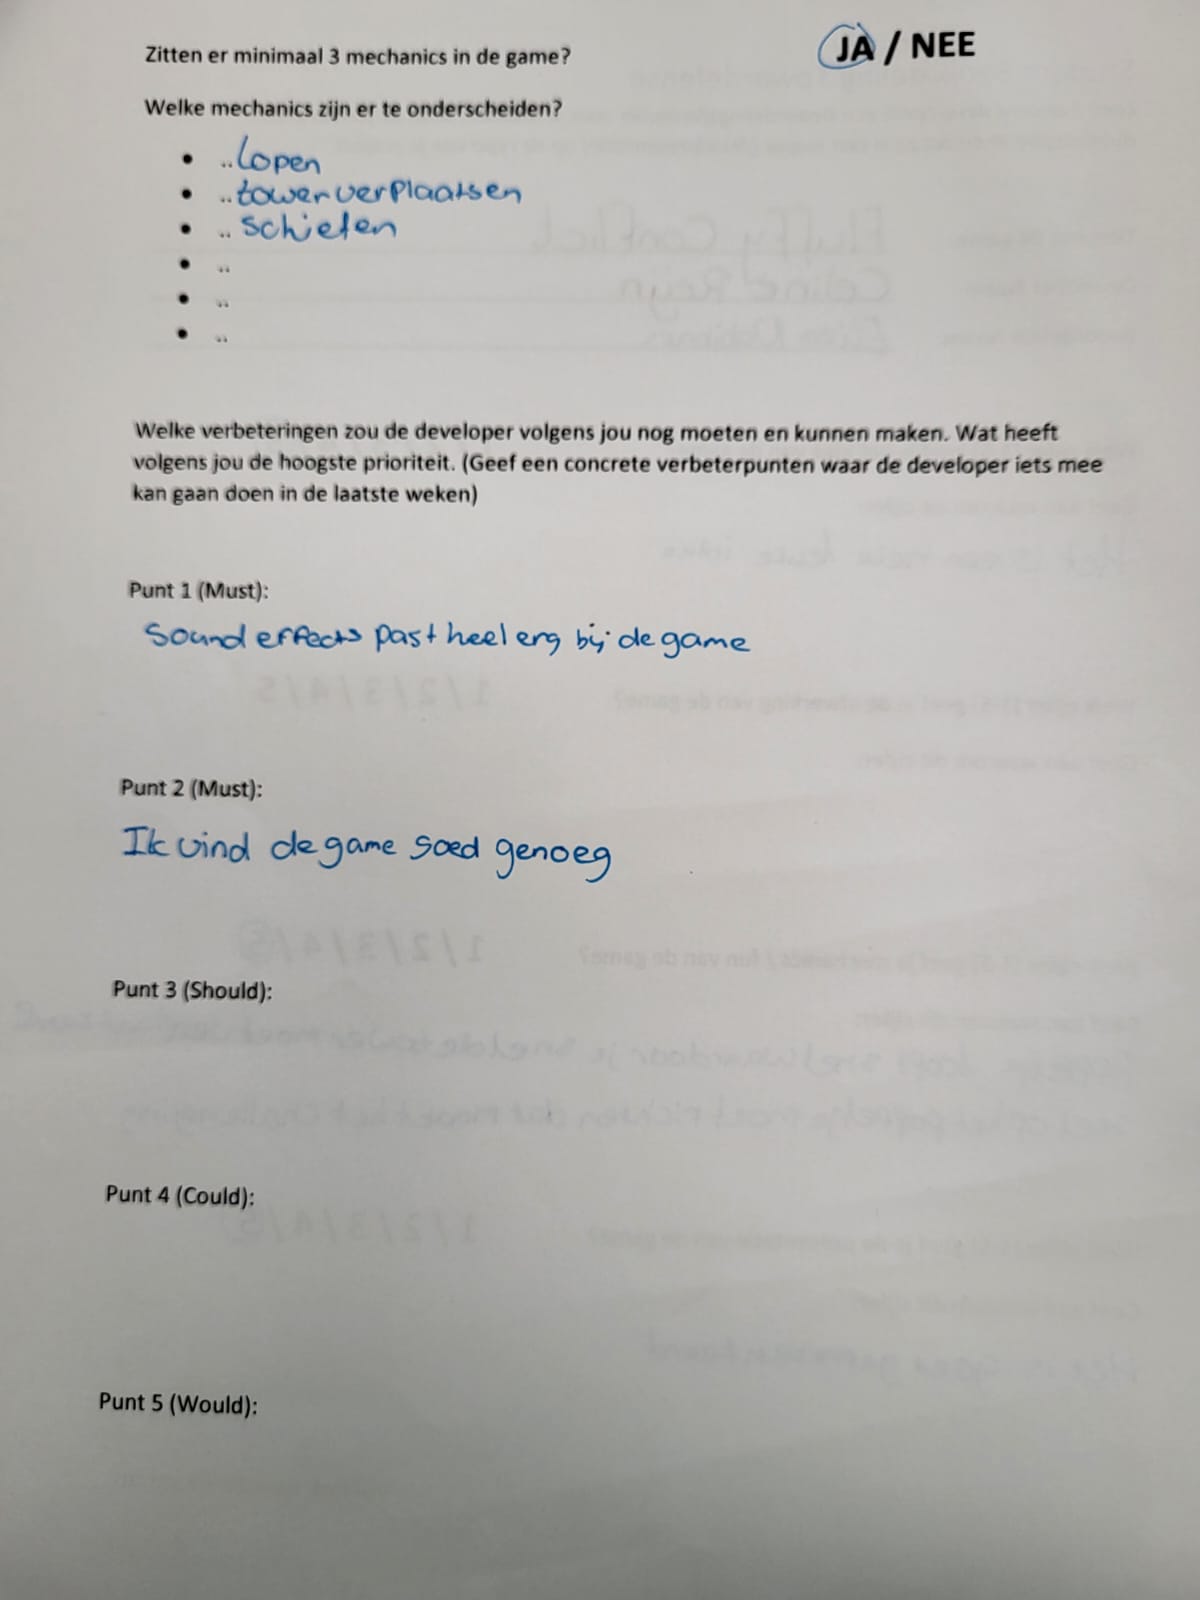 Zitten er minimaal 3 mechanics in de game? JA / NEE
Welke mechanics zijn er te onderscheiden?
• ..lopen
• ..tower verplaatsen
• ..schieten
• ..
• ..
• ..
Welke verbeteringen zou de developer volgens jou nog moeten en kunnen maken. Wat heeft
volgens jou de hoogste prioriteit. (Geef een concrete verbeterpunten waar de developer iets mee
kan gaan doen in de laatste weken)
Punt 1 (Must):
Sound effects past heel erg bij de game
Punt 2 (Must):
Ik vind de game goed genoeg
Punt 3 (Should):
Punt 4 (Could):
Punt 5 (Would):